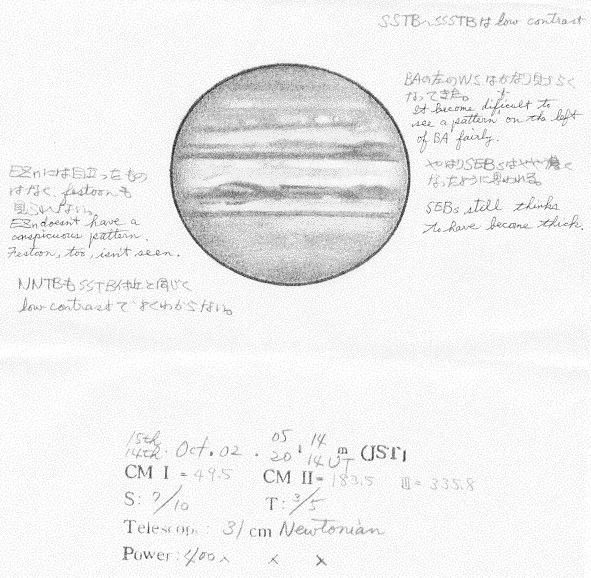 SSTB〜SSSTBはlow contrast
BAの左のWSはかなり見づらく
なってきた。
It become dificult to
see a pattern on the left
of BA fairly.
やはりSEBsはやや濃く
なったように思われる。
SEBs still thinks
to have become thick.
EZnには目立ったもの
はなく、festoonも
見られない。
EZn doesn't have a
conspicuous pattern.
Festoon, too, isn't seen.
NNTBもSSTB付近と同じく
low contrastでよくわからない。
15th 05 14
14th. Oct. 02. 20 14 m (JST)
UT
CM I = 49.5 CM II = 183.5 III = 335.8
S: 7/10 T: 3/5
Telescope: 31 cm Newtonian
Power: 400× × ×